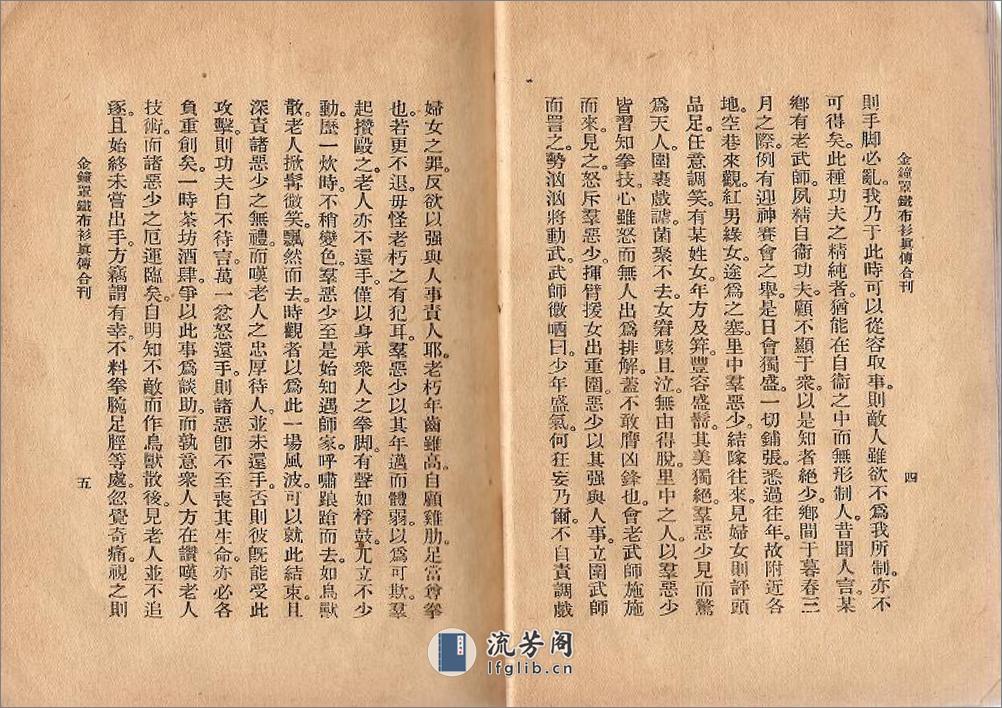 金鐘罩鐵布衫眞傳合刊
四
則手脚必亂。我乃于此時可以從容取事。則敵人雖欲不爲我所制。亦不
可得矣。此種功夫之精純者。猶能在自衞之中。而無形制人。昔聞人言。某
鄕有老武師。夙精自衞功夫。顧不顯于衆。以是知者絕少。鄕間于暮春三
月之際。例有迎神賽會之舉。是日會獨盛。一切鋪張。悉過往年。故附近各
地。空巷來觀。紅男綠女。途爲之塞。里中羣惡少。結隊往來。見婦女則評頭
品足。任意調笑。有某姓女。年方及笄。豐容盛鬋。其美獨絕。羣惡少見而驚
爲天人。圍裹戲謔。菌聚不去。女窘駭且泣。無由得脫。里中之人。以羣惡少
皆習知拳技。心雖怒而無人出爲排解。蓋不敢膺凶鋒也。會老武師施施
而來。見之怒斥羣惡少。揮臂援女出重圍。惡少以其强與人事。立圍武師
而詈之。勢汹汹將動武。武師微哂曰。少年盛氣。何狂妄乃爾。不自責調戲
婦女之罪。反欲以强與人事責人耶。老朽年齒雖高。自顧雞肋足當尊拳
也。若更不退。毋怪老朽之有犯耳。羣惡少以其年邁而體弱。以爲可欺。羣
起攢毆之。老人亦不還手。僅以身承衆人之拳脚。有聲如桴鼓。兀立不少
動。歷一炊時。不稍變色。羣惡少至是始知遇師家。呼嘯踉蹌而去。如鳥獸
散。老人掀髯微笑。飄然而去。時觀者以爲此一場風波。可以就此結束。且
深責諸惡少之無禮。而嘆老人之忠厚待人。並未還手。否則彼旣能受此
攻擊。則功夫自不待言。萬一忿怒還手。則諸惡卽不至喪其生命。亦必各
負重創矣。一時茶坊酒肆。爭以此事爲談助。而孰意衆人方在讚嘆老人
技術。而諸惡少之厄運臨矣。自明知不敵而作鳥獸散後。見老人並不追
逐。且始終未嘗出手。方竊謂有幸。不料拳腕足脛等處。忽覺奇痛。視之則
金鐘罩鐵布衫眞傳合刊
五
流芳阁
lfglib.cn